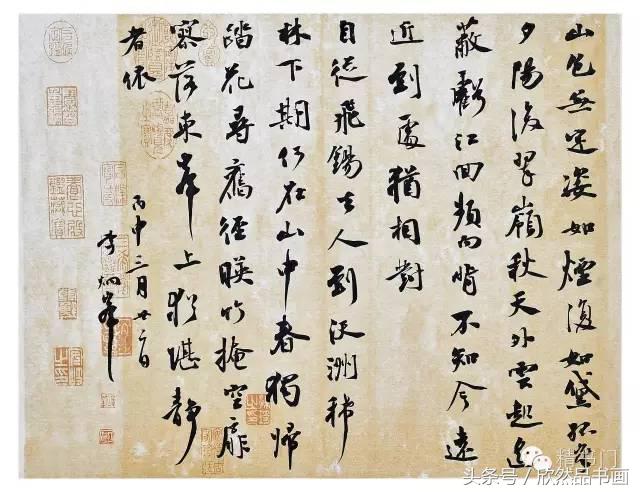 山色無定姿如煙復如黛孤峯
夕陽後翠嶺秋天外雲起遙
蔽虧江回頻向背不知今遠
近到處猶相對
自從飛錫去人到沃洲稀
林下期何在山中春獨歸
踏花尋舊徑暎竹掩空扉
寥落東峯上猶堪靜
者依
丙申三月廿日
李炯峯
精书门
头条号／欣然品书画